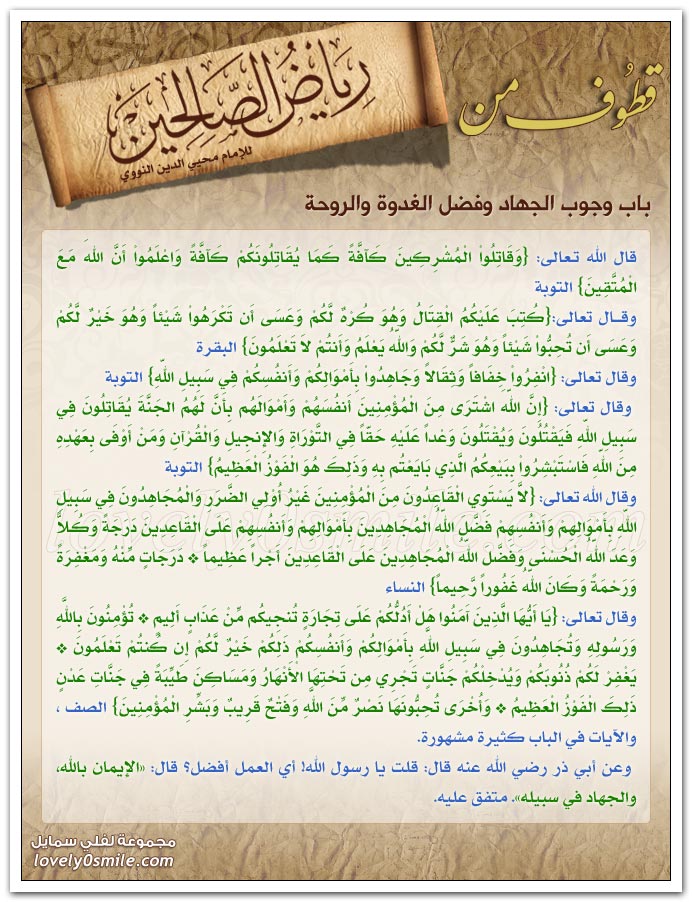 قطوف من
رياض الصالحين
للإمام محيي الدين النووي
باب وجوب الجهاد وفضل الغدوة والروحة
قال الله تعالى: {وَقَاتِلُواْ الْمُشْرِكِينَ كَآفَّةً كَمَا يُقَاتِلُونَكُمْ كَآفَّةً وَاعْلَمُواْ أَنَّ الله مَعَ
الْمُتَّقِينَ} التوبة
وقـال تعالى:{كُتِبَ عَلَيْكُمُ القِتَالُ وَهُوَ كُرْهٌ لَّكُمْ وَعَسَى أَن تَكْرَهُواْ شَيْئاً وَهُوَ خَيْرٌ لَّكُمْ
وَعَسَى أَن تُحِبُّواْ شَيْئاً وَهُوَ شَرٌّ لَّكُمْ وَالله يَعْلَمُ وَأَنتُمْ لاَ تَعْلَمُونَ} البقرة
وقال تعالى: {انْفِرُواْ خِفَافاً وَثِقَالاً وَجَاهِدُوا بِأَمْوَالِكُمْ وَأَنفُسِكُمْ فِي سَبِيلِ اللّهِ} التوبة
وقال تعالى: {إِنَّ الله اشْتَرَى مِنَ الْمُؤْمِنِينَ أَنفُسَهُمْ وَأَمْوَالَهُم بِأَنَّ لَهُمُ الجَنَّةَ يُقَاتِلُونَ فِي
سَبِيلِ اللّهِ فَيَقْتُلُونَ وَيُقْتَلُونَ وَعْداً عَلَيْهِ حَقّاً فِي التَّوْرَاةِ وَالإِنجِيلِ وَالْقُرْآنِ وَمَنْ أَوْفَى بِعَهْدِهِ
مِنَ اللّهِ فَاسْتَبْشِرُواْ بِبَيْعِكُمُ الَّذِي بَايَعْتُم بِهِ وَذَلِكَ هُوَ الْفَوْزُ الْعَظِيمُ} التوبة
وقال الله تعالى: {لاَّ يَسْتَوِي القَاعِدُونَ مِنَ الْمُؤْمِنِينَ غَيْرُ أُوْلِي الضَّرَرِ وَالْمُجَاهِدُونَ فِي سَبِيلِ
اللّهِ بِأَمْوَالِهِمْ وَأَنفُسِهِمْ فَضَّلَ اللّهُ المُجَاهِدِينَ بِأَمْوَالِهِمْ وَأَنفُسِهِمْ عَلَى القَاعِدِينَ دَرَجَةً وَكُلاًّ
وَعَدَ الله الْحُسْنَى وَفَضَّلَ الله المُجَاهِدِينَ عَلَى القَاعِدِينَ أَجْراً عَظِيماً ❖ دَرَجَاتٍ مِّنْهُ وَمَغْفِرَةً
وَرَحْمَةً وَكَانَ اللهُ غَفُوراً رَّحِيماً} النساء
وقال تعالى: {يَا أَيُّهَا الَّذِينَ آمَنُوا هَلْ أَدُلُّكُمْ عَلَى تِجَارَةٍ تُنجِيكُم مِّنْ عَذَابٍ أَلِيمٍ ❖ تُؤْمِنُونَ بِاللَّهِ
وَرَسُولِهِ وَتُجَاهِدُونَ فِي سَبِيلِ اللَّهِ بِأَمْوَالِكُمْ وَأَنفُسِكُمْ ذَلِكُمْ خَيْرٌ لَّكُمْ إِن كُنتُمْ تَعْلَمُونَ ❖
يَغْفِرْ لَكُمْ ذُنُوبَكُمْ وَيُدْخِلْكُمْ جَنَّاتٍ تَجْرِي مِن تَحْتِهَا الْأَنْهَارُ وَمَسَاكِنَ طَيِّبَةً فِي جَنَّاتِ عَدْنٍ
ذَلِكَ الْفَوْزُ الْعَظِيمُ ❖ وَأُخْرَى تُحِبُّونَهَا نَصْرٌ مِّنَ اللَّهِ وَفَتْحٌ قَرِيبٌ وَبَشِّرِ الْمُؤْمِنِينَ} الصف ،
والآيات في الباب كثيرة مشهورة.
وعن أبي ذر رضي الله عنه قال: قلت يا رسول الله! أي العمل أفضل؟ قال: «الإيمان بالله،
والجهاد في سبيله». متفق عليه.
مجموعة لفلي سمايل
lovely0smile.com